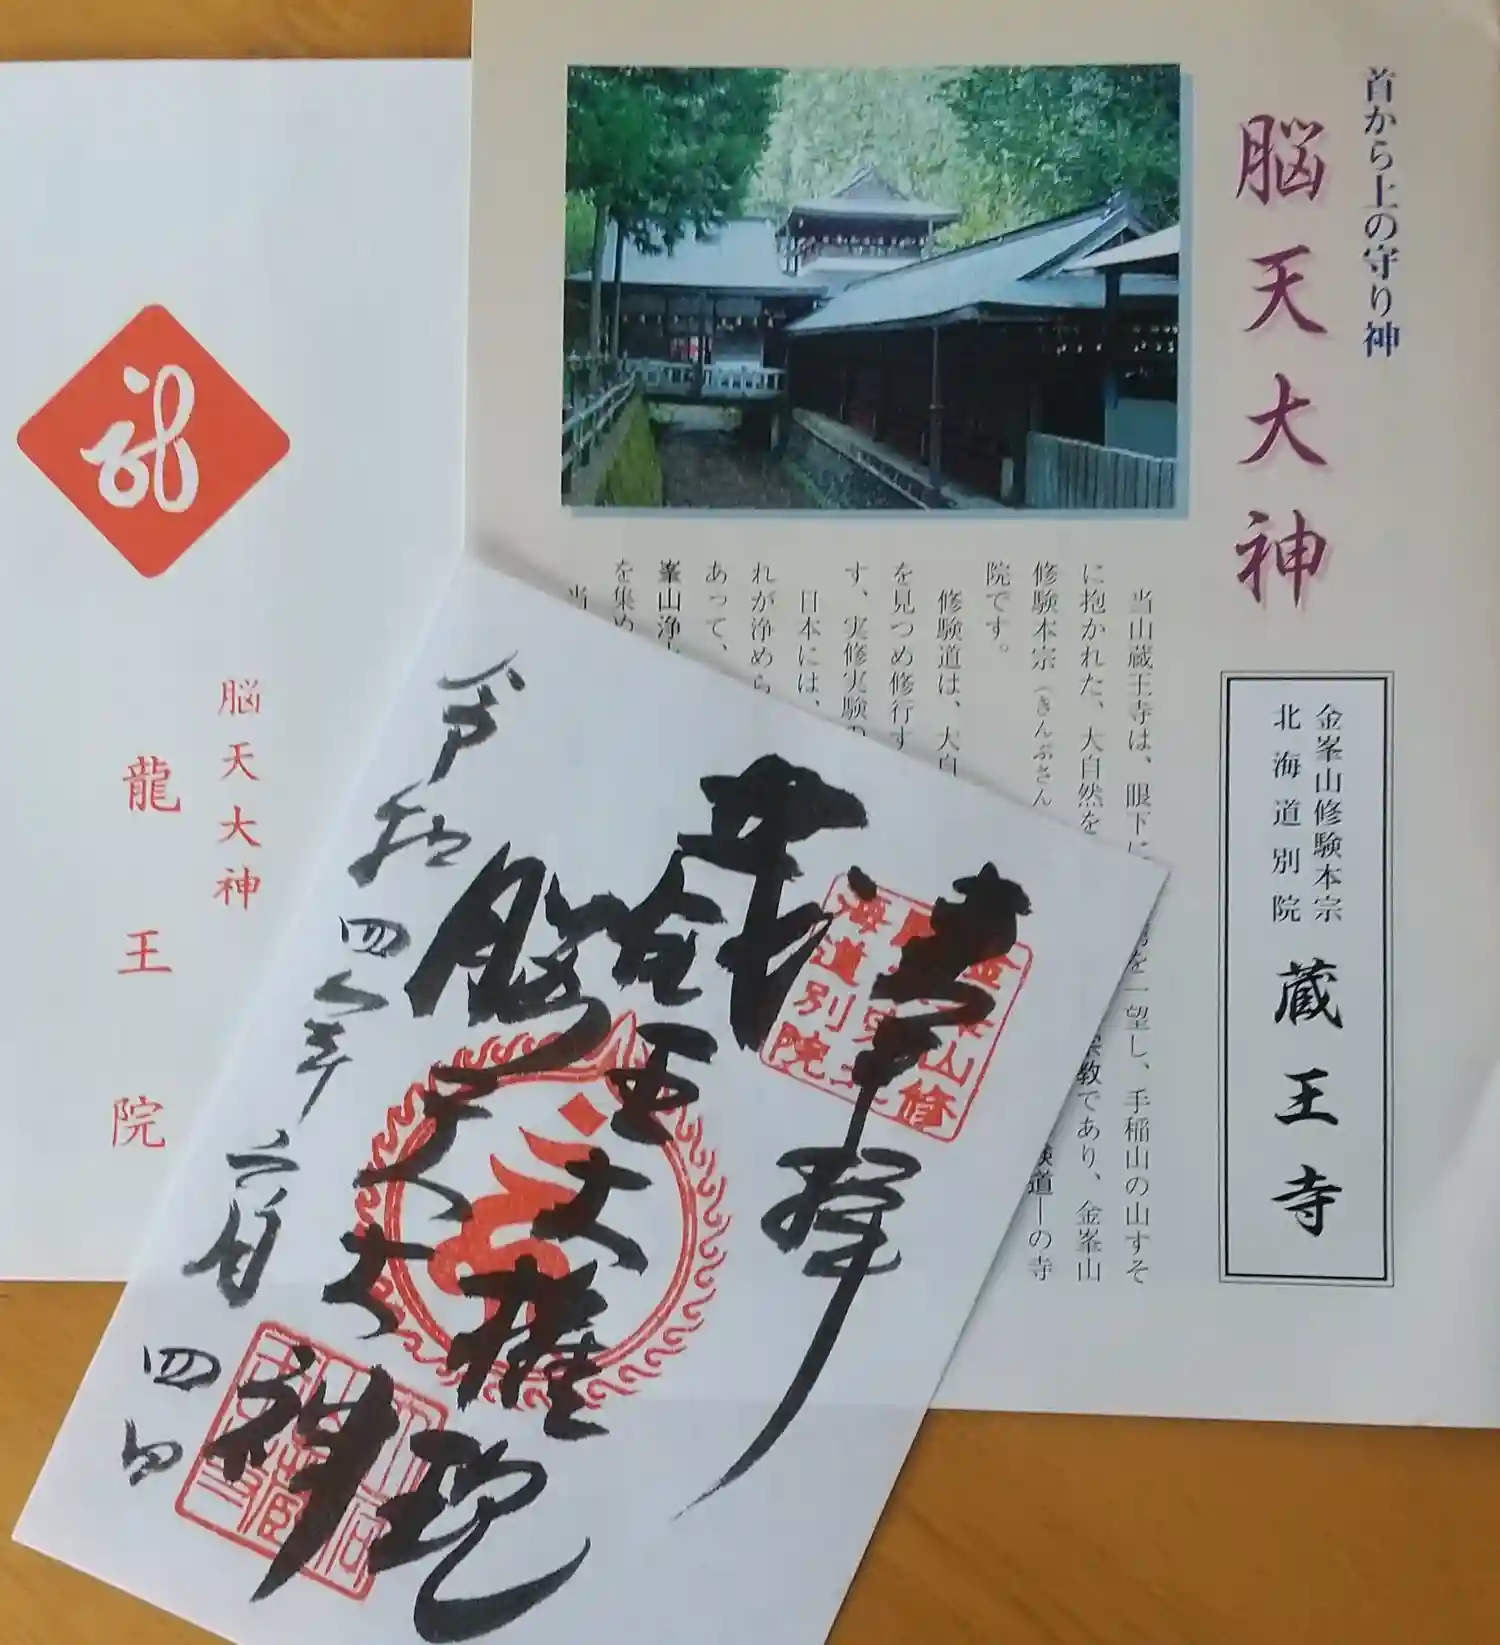 首から上の守り神
脳天大神
金峯山修験本宗
北海道別院
蔵王寺
当山蔵王寺は、眼下に
を一望し、手稲山の山すそ
に抱かれた、大自然を
宗教であり、金峯山
修験本宗(きんぷさん
験道―の寺
院です。
修験道は、大自
を見つめ修行す
す、実修実験の
日本には、
れが浄めら
あって、
峯山浄土
を集め
当
奉拝
蔵王大権現
脳天大神
令和四年六月四日
龍
脳天大神
龍王院